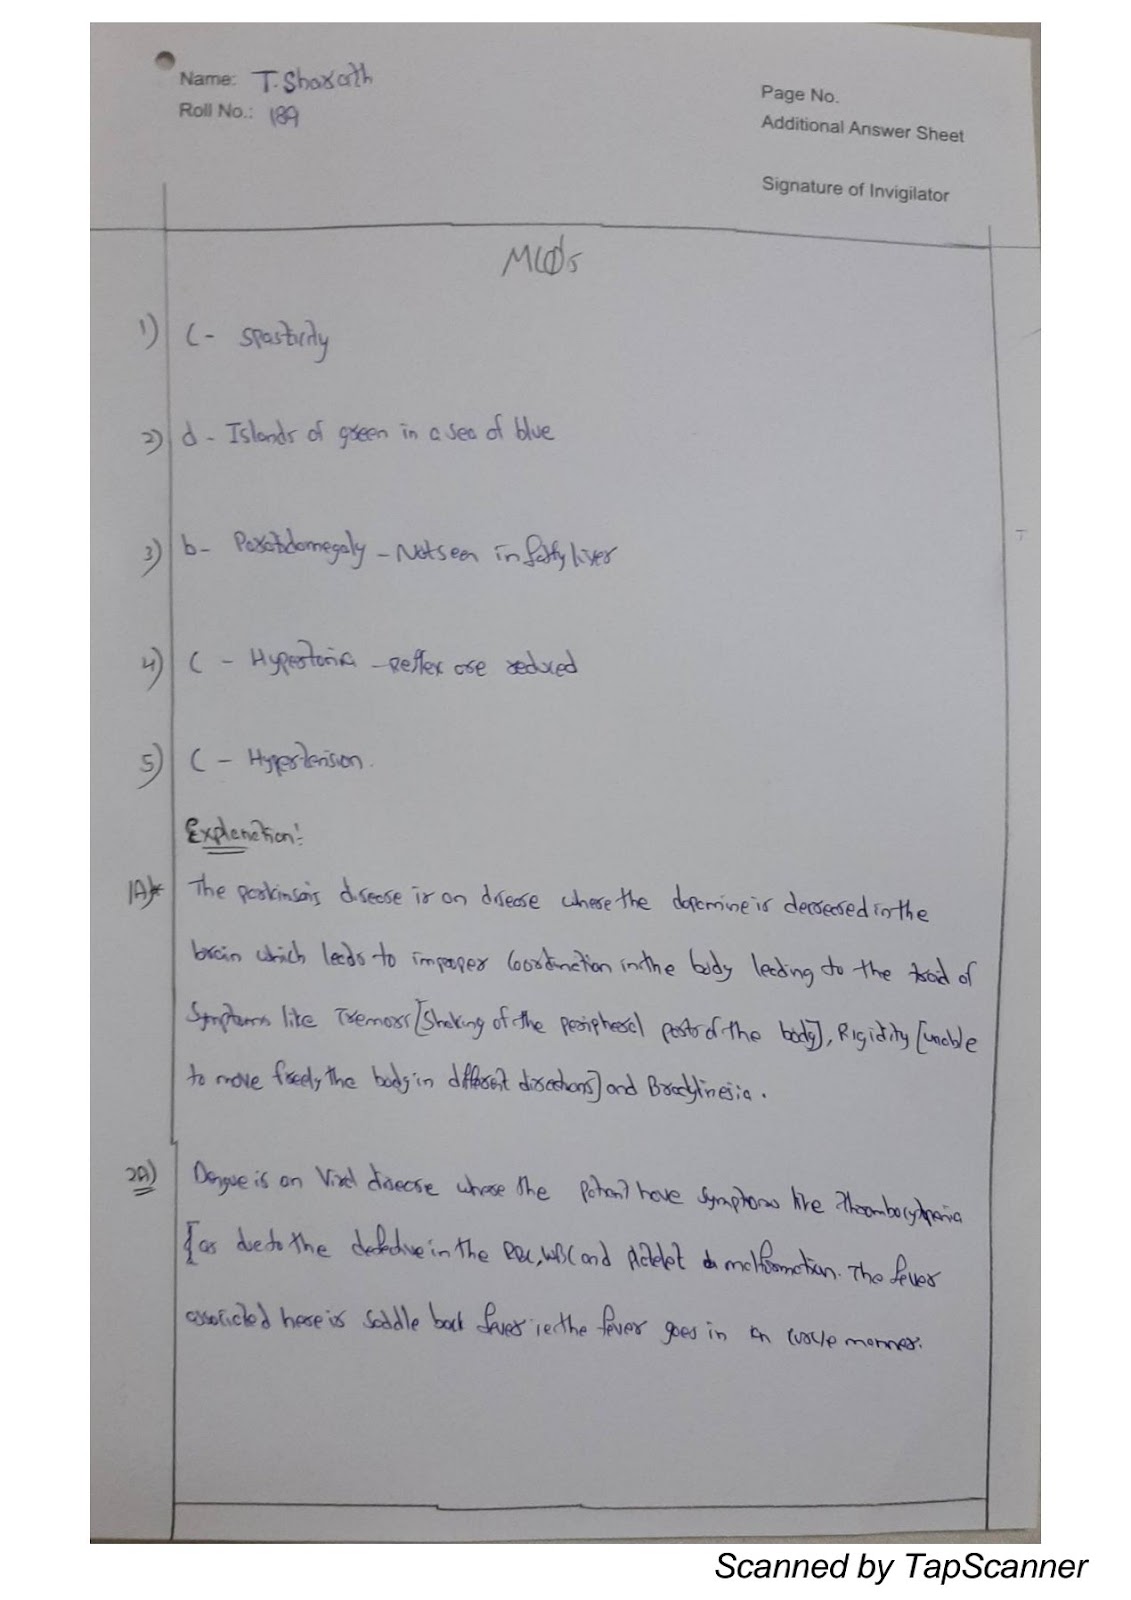 Name: T. Sharath
Roll No.: 189
Page No.
Additional Answer Sheet
Signature of Invigilator
MCQs
1) C - Spasticity
2) d - Islands of green in a sea of blue
3) b - Parotidomegaly - Not seen in fatty liver
4) C - Hypertonia - Reflex are reduced
5) C - Hypertension.
Explenation:
1A) The parkinson's disease is an disease where the dopamine is decreased in the
brain which leads to improper coordination in the body leading to the traid of
Symptoms like Tremors [Shaking of the peripheral parts of the body], Rigidity [unable
to move freely the body in different directions] and Bradykinesia.
2A) Dengue is an Viral disease where the patient have symptoms like Thrombocytopenia
[as due to the defective in the RBC, WBC and platelet malformation. The fever
associated here is Saddle back fever i.e the fever goes in an curve manner.
Scanned by TapScanner